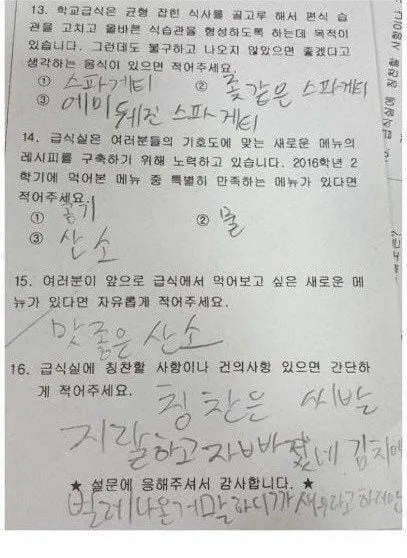 13. 학교급식은 균형 잡힌 식사를 골고루 해서 편식 습
관을 고치고 올바른 식습관을 형성하도록 하는데 목적이
있습니다. 그런데도 불구하고 나오지 않았으면 좋겠다고
생각하는 음식이 있으면 적어주세요.
① 스파게티 ② 좆같은 스파게티
③ 에미 뒈진 스파게티
14. 급식실은 여러분들의 기호도에 맞는 새로운 메뉴의
레시피를 구축하기 위해 노력하고 있습니다. 2016학년 2
학기에 먹어본 메뉴 중 특별히 만족하는 메뉴가 있다면
적어주세요.
① 공기 ② 물
③ 산소
15. 여러분이 앞으로 급식에서 먹어보고 싶은 새로운 메
뉴가 있다면 자유롭게 적어주세요.
맛좋은 산소
16. 급식실에 칭찬할 사항이나 건의사항 있으면 간단하
게 적어주세요.
칭찬은 씨발
지랄하고 자빠졌네 김치에
★ 설문에 응해주셔서 감사합니다. ★
벌레나온거 말하니까 새우라고 하려